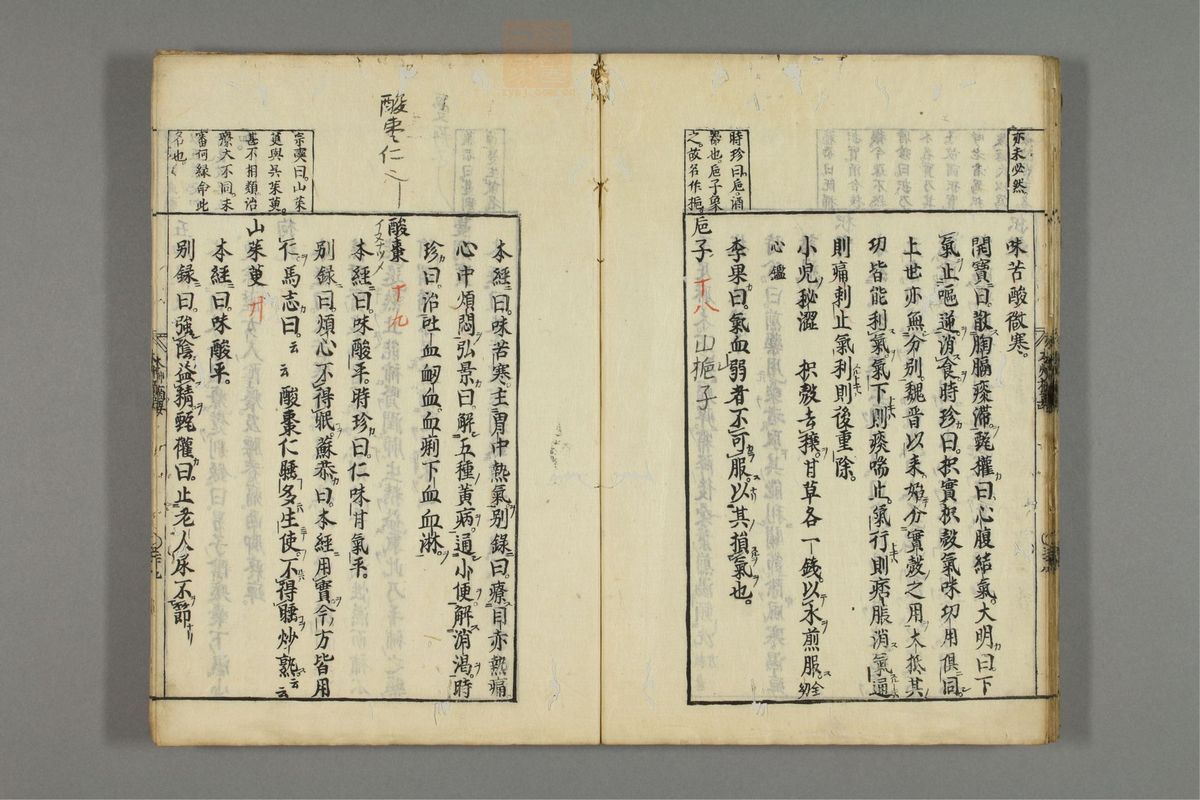 亦未必然
味苦酸微寒。
開寶曰。散胸膈痰滯。甄權曰。心腹結氣。大明曰。下
氣止嘔逆。消食。時珍曰。枳實枳殼氣味功用俱同。
上世亦無分別。魏晉以來。始分實殼之用。大抵其
功皆能利氣。氣下則痰喘止。氣行則痞脹消。氣通
則痛刺止。氣利則後重除。
小兒秘澀 枳殼去穰。甘草各一錢。以水煎服。全幼
心鑑
李杲曰。氣血弱者不可服。以其損氣也。
時珍曰。巵。酒
器也。巵子象
之。故名。作梔。
巵子 十八 山梔子
本經曰。味苦寒。主胃中熱氣。別錄曰。療目赤熱痛。
心中煩悶。弘景曰。解五種黃病。通小便。解消渴。時
珍曰。治吐血衄血。血痢下血血淋。
酸棗仁
酸棗 十九
イヌナツメ
本經曰。味酸平。時珍曰。仁味甘氣平。
別錄曰。煩心不得眠。蘇恭曰。本經用實。今方皆用
仁。馬志曰。云 酸棗仁睡多生使。不得睡炒熟。云云
宗奭曰。山茱
萸與吳茱萸。
甚不相類。治
療大不同。未
審何緣命此
名也。
山茱萸 廿
本經曰。味酸平。
別錄曰。強陰益精。甄權曰。止老人尿不節